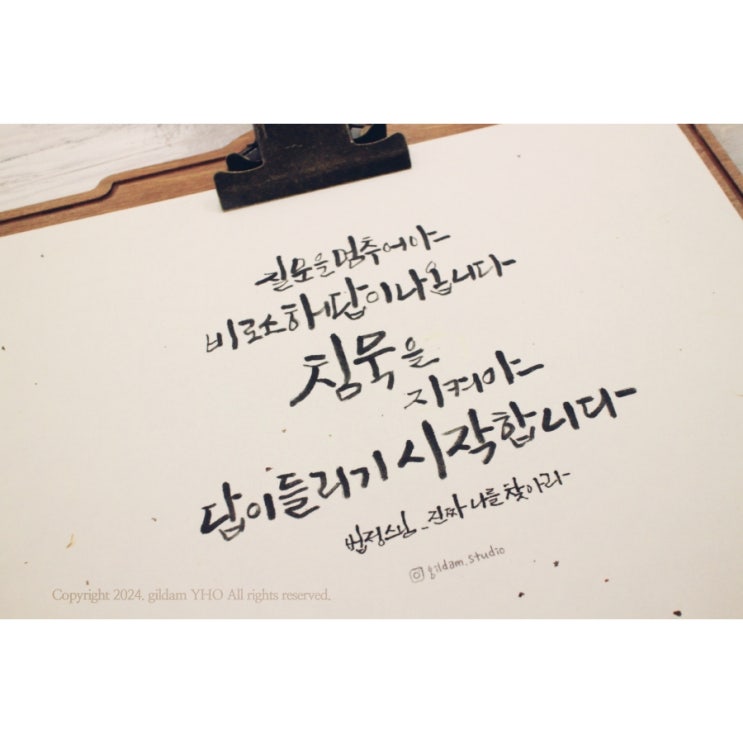 질문을 멈추어야
비로소 해답이 나옵니다
침묵을
지켜야
답이 들리기 시작합니다
법정스님_진짜 나를 찾아라
gildam.studio
Copyright 2024. gildam YHO All rights reserved.